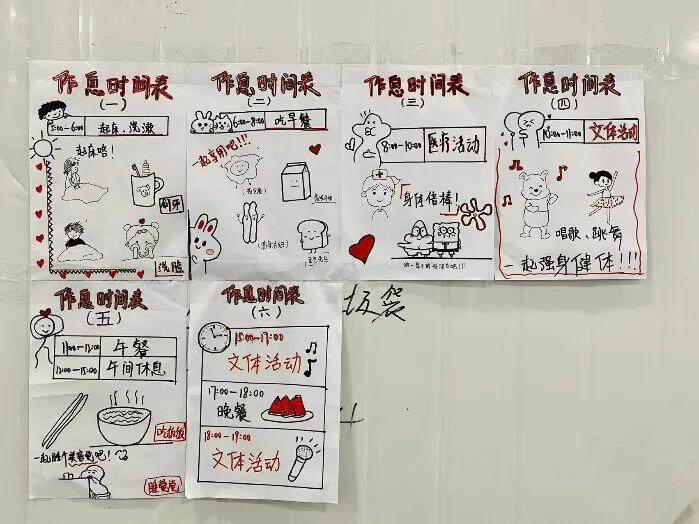 作息时间表
(一)
5:00-6:00 起床、洗漱
起床咯!
刷牙
洗脸
作息时间表
(二)
6:00-8:00 吃早餐
一起享用吧!!!
作息时间表
(三)
8:00-10:00 医疗活动
身体倍棒!
作息时间表
(四)
10:00-11:00 文体活动
唱歌、跳舞
起强身健体!!!
作息时间表
(五)
11:00-12:00 午餐
12:00-15:00 午间休息
吃饭饭
一起睡个美容觉吧!
睡觉觉
作息时间表
(六)
15:00-17:00
文体活动
17:00-18:00
晚餐
18:00-19:00
文体活动
袋